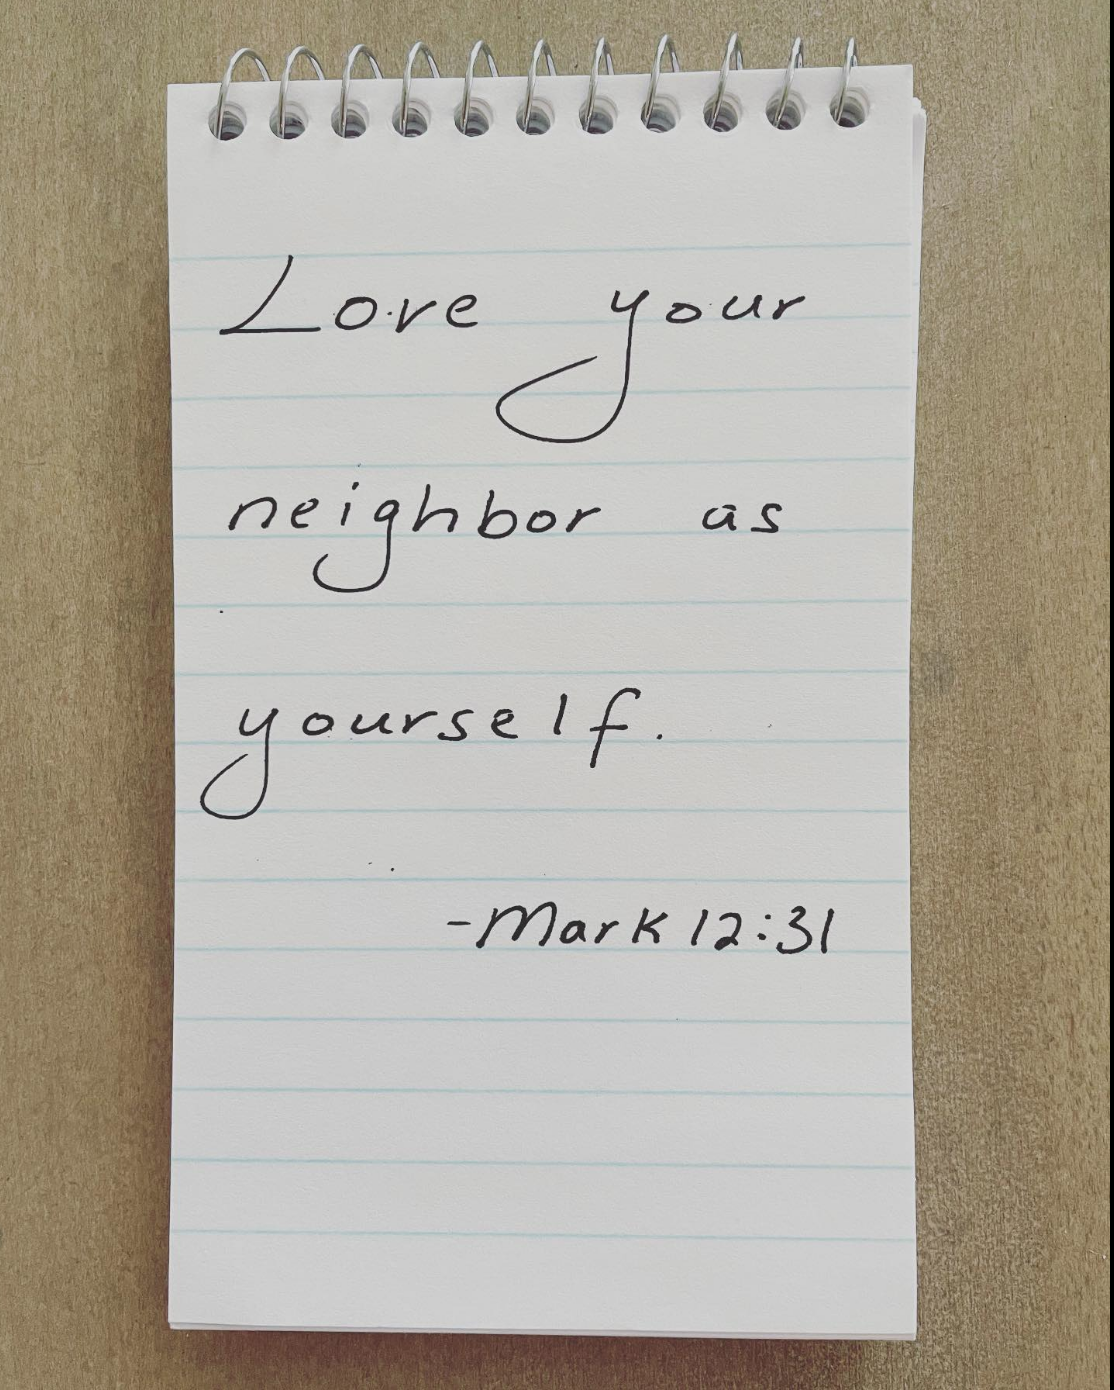 Love your
neighbor as
yourself.
-Mark 12:31